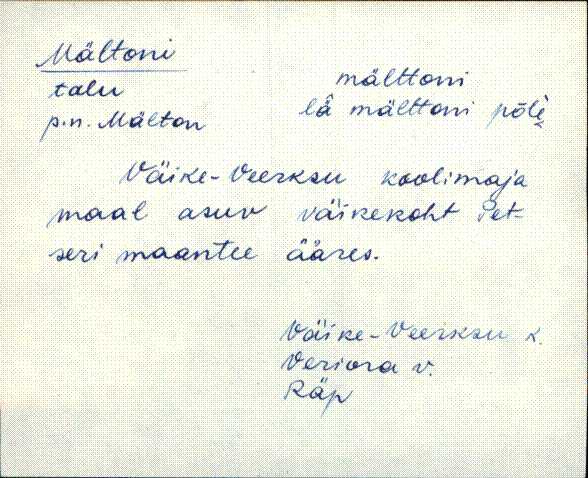 Mältoni
talu
p.n. Mälton
mälttoni
lä mälttoni põlè
Väike-Veerksu koolimaja
maal asuv väikekoht Pet-
seri maantee ääres.
Väike-Veerksu k.
Veriora v.
Räp